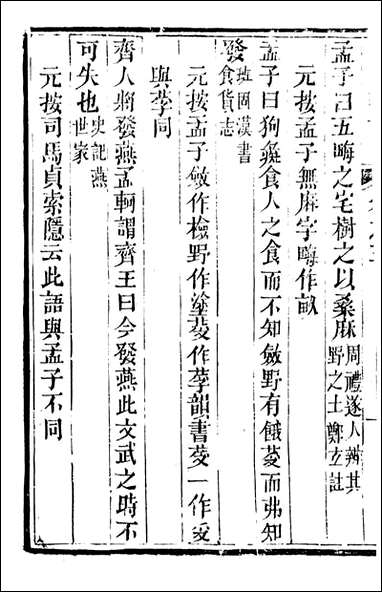 孟子曰五畮之宅樹之以桑麻周禮遂人辨其野之土鄭玄註
元按孟子無麻字畮作畝
孟子曰狗彘食人之食而不知斂野有餓荽而弗知
發班固漢書食貨志
元按孟子斂作檢野作塗荽作莩韻書荽一作受
與莩同
齊人將發燕孟軻謂齊王曰今發燕此文武之時不
可失也史記燕世家
元按司馬貞索隱云此語與孟子不同